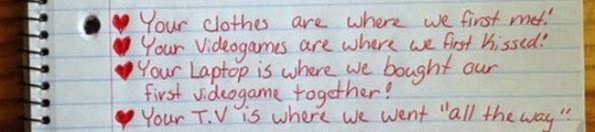 Your clothes are where we first met!
Your Videogames are where we first kissed!
Your Laptop is where we bought our
first videogame together!
Your T.V is where we went "all the way".